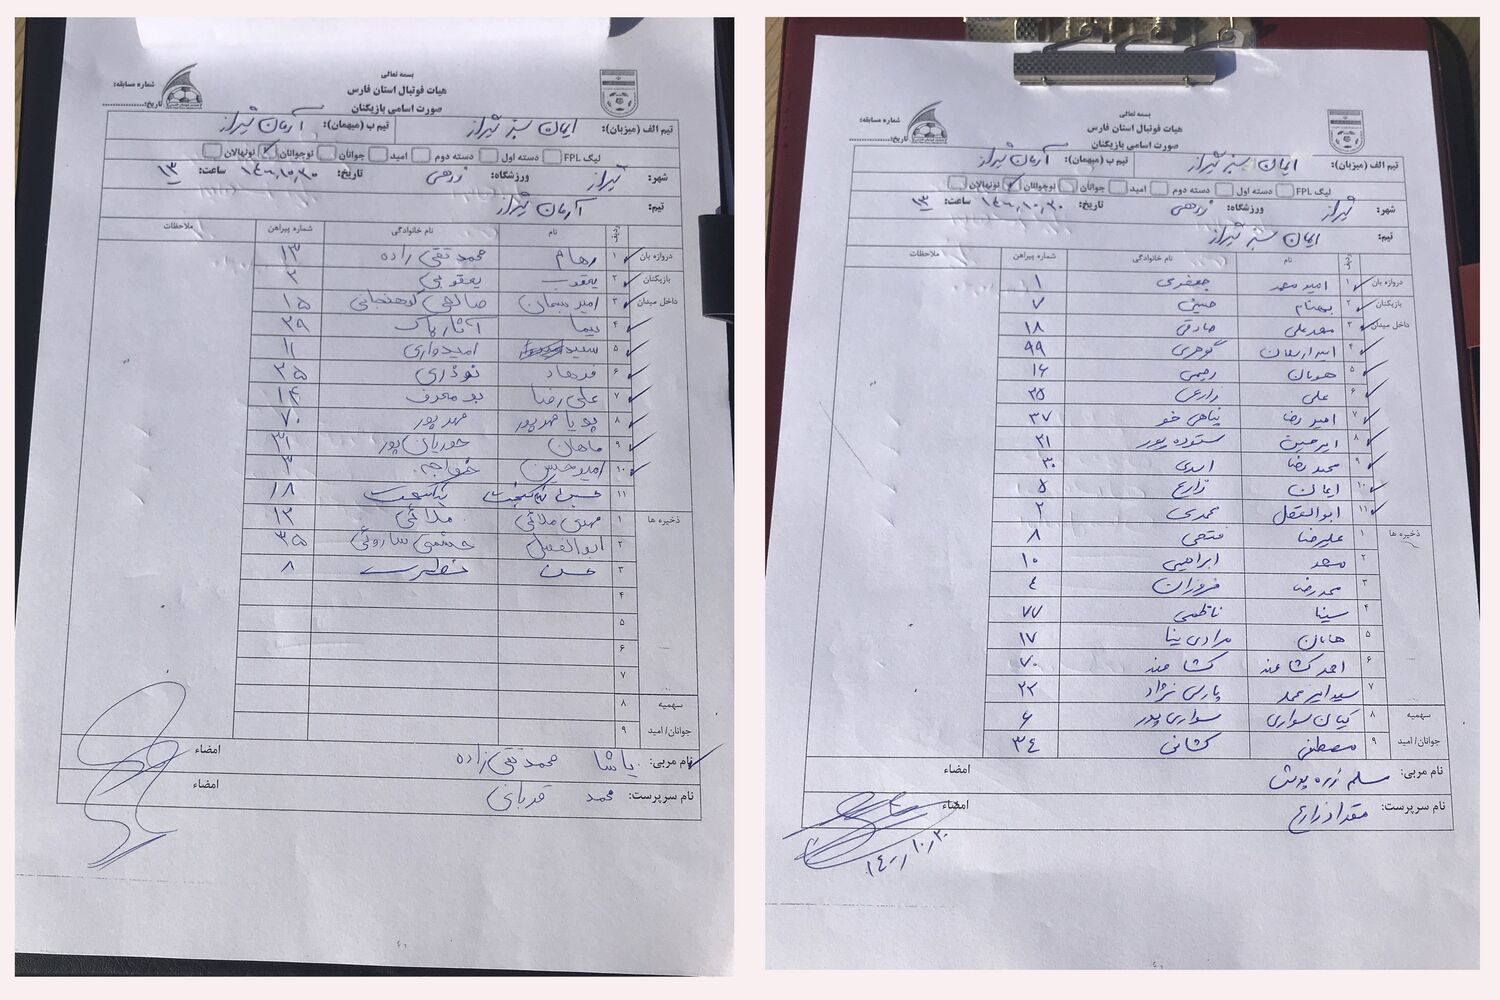 بسمه تعالی
هیات فوتبال استان فارس
صورت اسامی بازیکنان
شماره مسابقه:
تاریخ:
تیم الف (میزبان): ایمان سبز شیراز تیم ب (میهمان): آرمان شیراز
لیگ FPL دسته اول دسته دوم امید جوانان نوجوانان نونهالان
شهر: شیراز ورزشگاه: تاریخ: ۱۴۰۰/۱۰/۳۰ ساعت: ۱۳
تیم: آرمان شیراز
ردیف نام نام خانوادگی شماره پیراهن ملاحظات
دروازه بان ۱ رهام محمد تقی زاده ۱۳
بازیکنان ۲ یعقوب یعقوبی ۲
داخل میدان ۳ امیر سمان صالحی کوهنجانی ۱۵
۴ نیما آثار پاک ۲۹
۵ سعید امیدواری ۱۱
۶ فرهاد نوذری ۲۵
۷ علی رضا بو معرف ۱۴
۸ پویا مهرپور مهرپور ۷۰
۹ ماهان حوریان پور ۳۱
۱۰ امیرحسین خواجه ۳
۱۱ نیکبخت ۱۸
ذخیره ها ۱ مهدی ملائی ملائی ۱۲
۲ ابوالفضل ۳۵
۳ حسن ۸
۴
۵
۶
۷
سهمیه ۸
جوانان/امید ۹
نام مربی: یاشا محمد تقی زاده امضاء
نام سرپرست: محمد قربانی امضاء
بسمه تعالی
هیات فوتبال استان فارس
صورت اسامی بازیکنان
شماره مسابقه:
تاریخ:
تیم الف (میزبان): ایمان سبز شیراز تیم ب (میهمان): آرمان شیراز
لیگ FPL دسته اول دسته دوم امید جوانان نوجوانان نونهالان
شهر: شیراز ورزشگاه: تاریخ: ۱۴۰۰/۱۰/۳۰ ساعت: ۱۳
تیم: ایمان سبز شیراز
ردیف نام نام خانوادگی شماره پیراهن ملاحظات
دروازه بان ۱ امیر محمد جعفری ۱
بازیکنان ۲ بهنام حسینی ۷
داخل میدان ۳ محمد علی صادقی ۱۸
۴ امیر ارسلان گوهری ۹۹
۵ هومان رحیمی ۱۶
۶ علی زارعی ۲۵
۷ امیر رضا پناهی خو ۳۷
۸ امیرحسین ستوده پور ۲۱
۹ محمد رضا اسدی ۳۰
۱۰ ایمان زارع ۵
۱۱ ابوالفضل محمدی ۲
ذخیره ها ۱ علیرضا فتحی ۸
۲ محمد ابراهیمی ۱۰
۳ محمد رضا فروزان ۴
۴ سینا ناظمی ۷۷
۵ هامان مرادی بینا ۱۷
۶ احمد کشا مند کشا مند ۷۰
۷ سید امیر محمد پارسی نژاد ۲۲
سهمیه ۸ کیان سواری سواری پور ۶
جوانان/امید ۹ مصطفی کشانی ۳۴
نام مربی: سلم زره پوش امضاء
نام سرپرست: مقداد زارع امضاء
۱۴۰۰/۱۰/۳۰